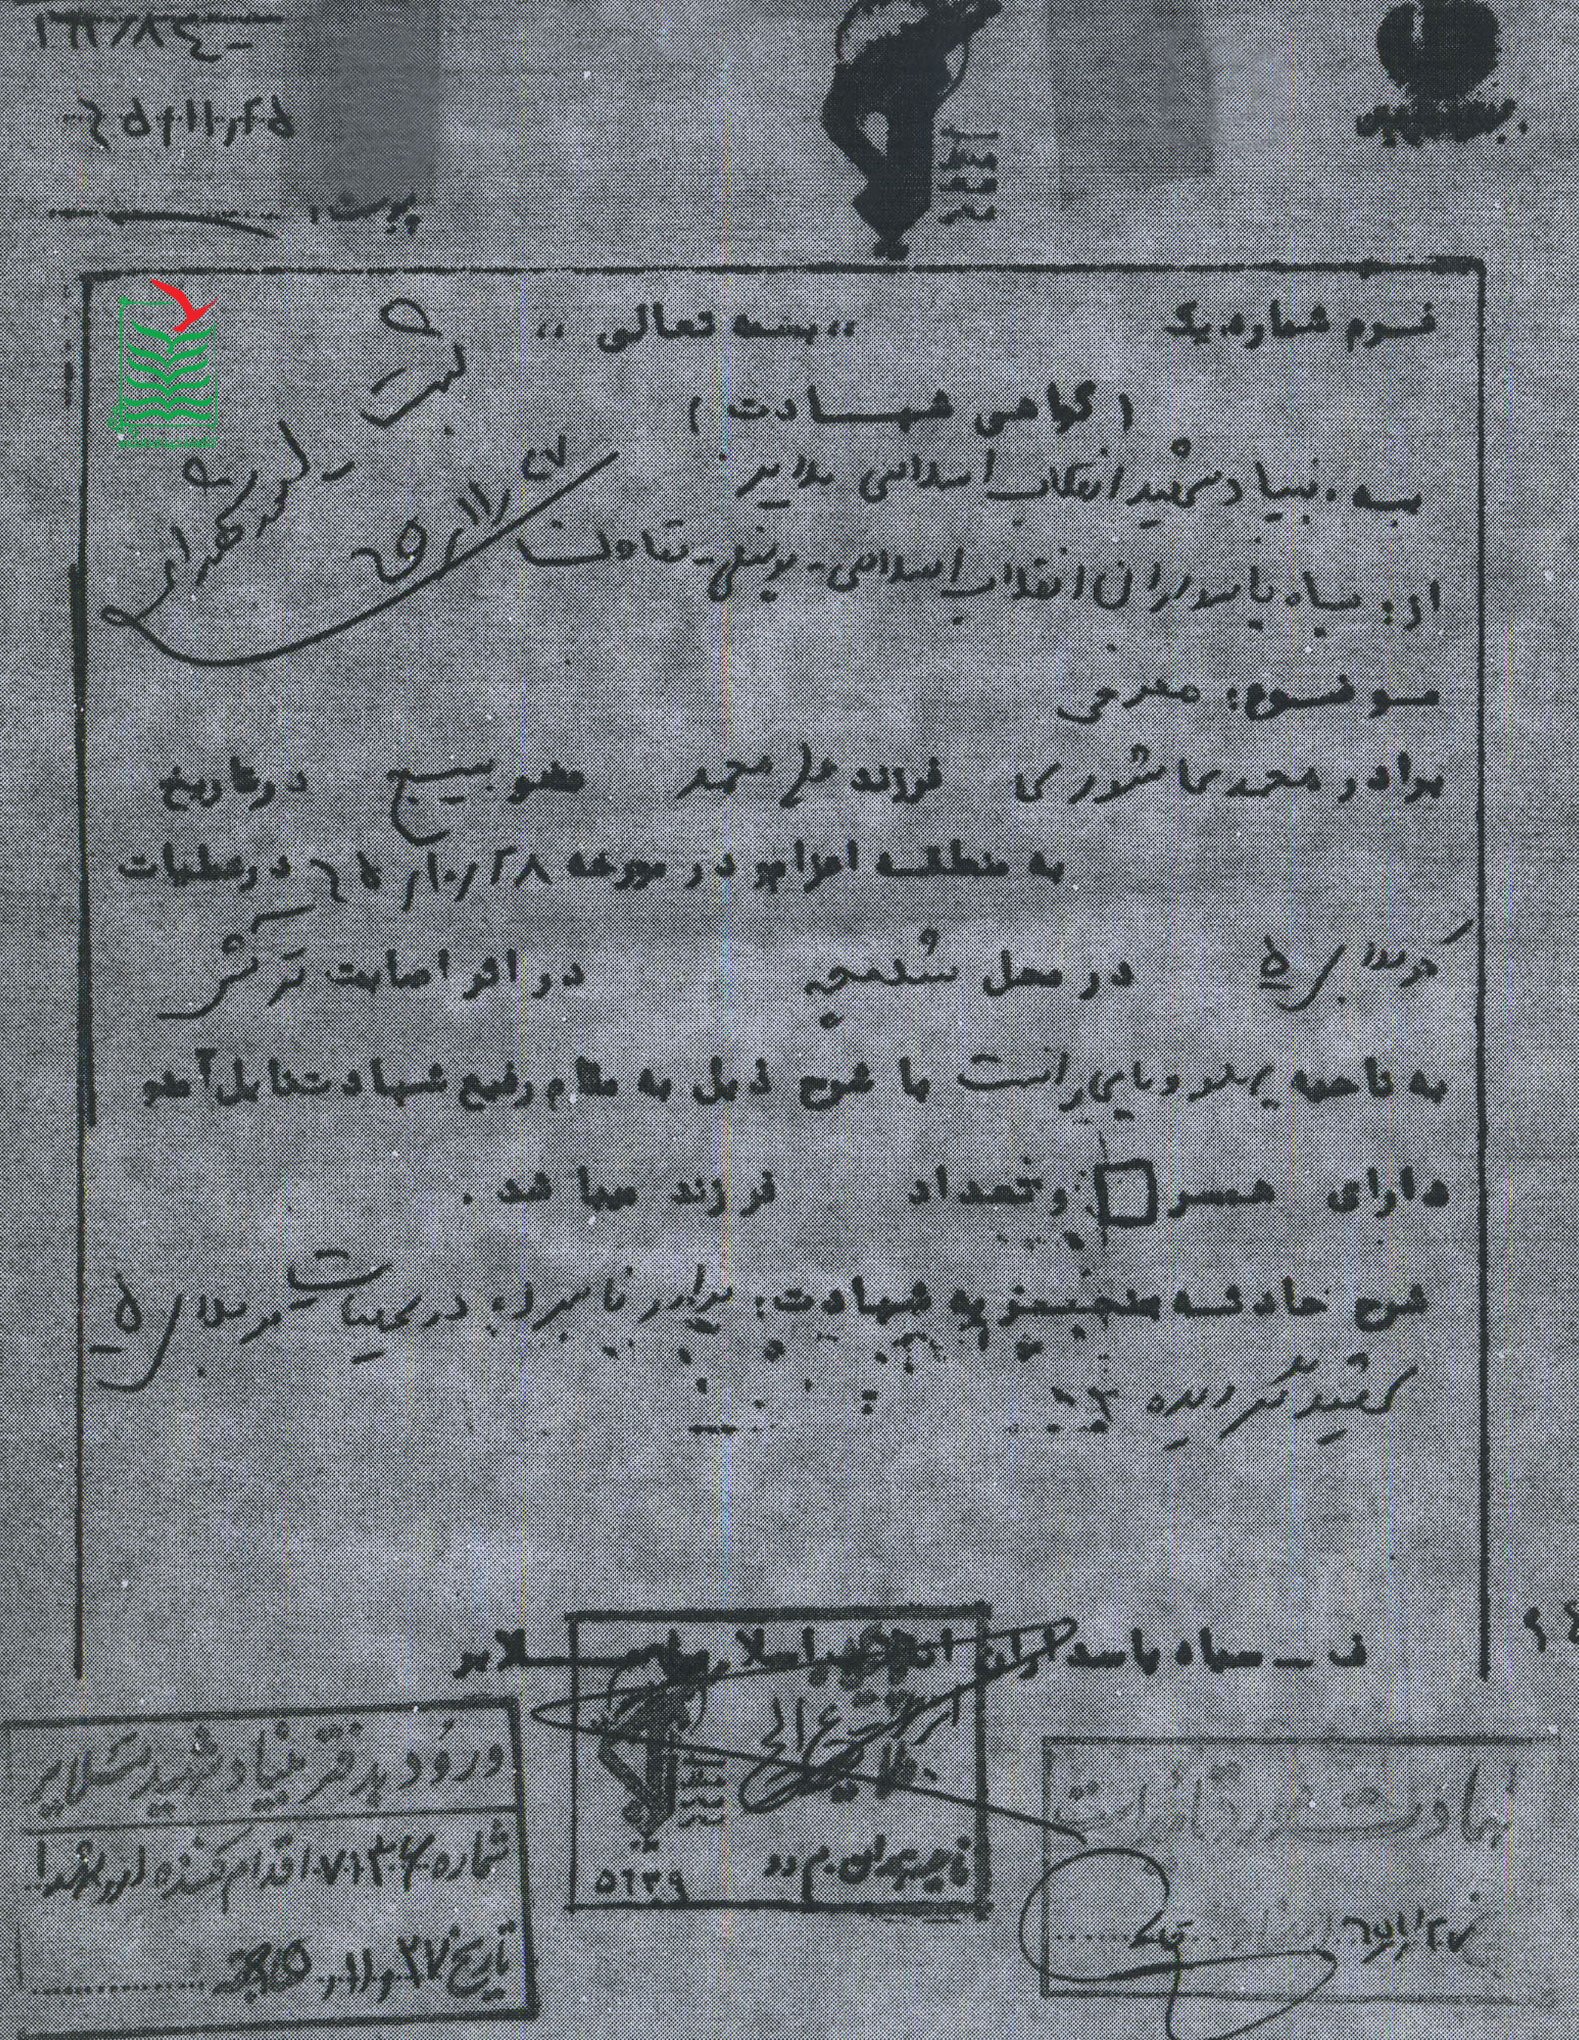 ۶۵/۱۱/۲۵
پیوست:
فرم شماره یک
,, بسمه تعالی ,,
( گواهی شهادت )
به: بنیاد شهید انقلاب اسلامی ملایر
از: سپاه پاسداران انقلاب اسلامی - پرسنلی - تعاونی
۶۵/۱۱/۲۷
موضوع: معرفی
برادر محمد عاشوری فرزند علی محمد عضو بسیج در تاریخ
به منطقه اعزام و در مورخه ۶۵/۱۰/۲۸ در عملیات
کربلای ۵ در محل شلمچه در اثر اصابت ترکش
به ناحیه پهلو و پای راست با شرح ذیل به مقام رفیع شهادت نایل آمد
دارای همسر و تعداد فرزند میباشد.
شرح حادثه منجر به شهادت: برادر نامبرده در عملیات کربلای ۵
شهید گردیده
ف - سپاه پاسداران انقلاب اسلامی ملایر
ورود بدفتر بنیاد شهید ملایر
شماره ۷۱۳۴ اقدام کننده امور شهدا
تاریخ ۲۷/۱۱/۶۵
ناحیه همدان
۵۶۳۹
۶۵/۱۱/۲۷